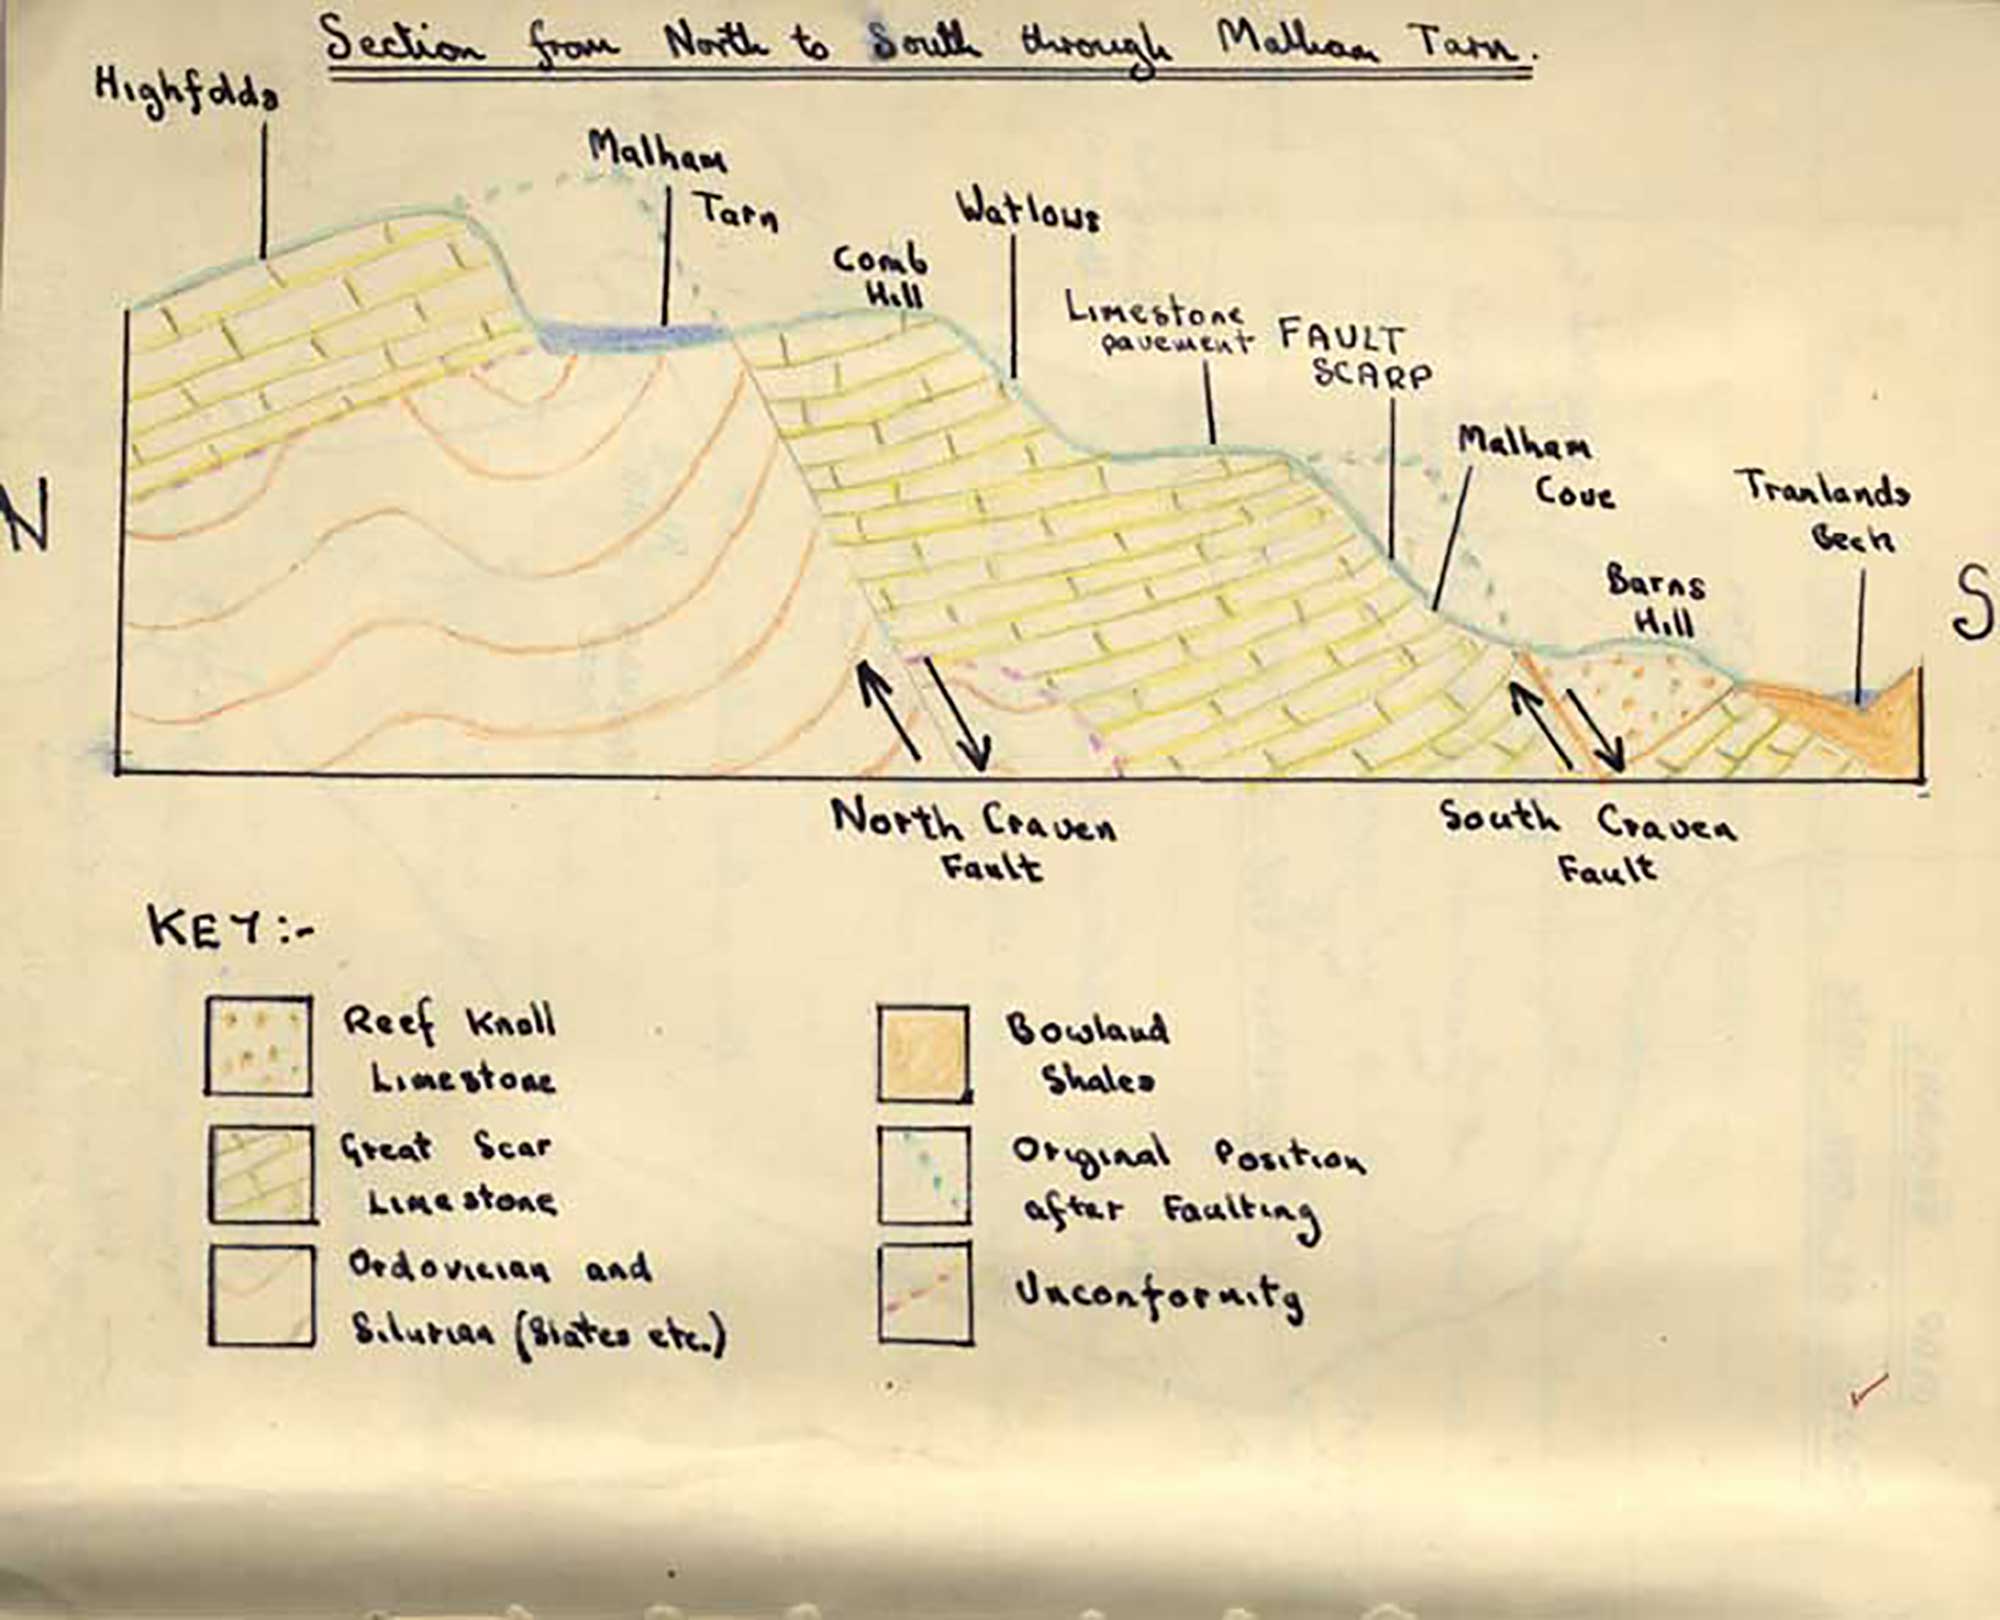 Section from North to South through Malham Tarn.
Highfolds
Malham
Tarn
Comb
Hill
Watlows
Limestone
pavement
FAULT
SCARP
Malham
Cove
Tranlands
Beck
Barns
Hill
N
S
North Craven
Fault
South Craven
Fault
KEY:-
Reef Knoll
Limestone
Great Scar
Limestone
Ordovician and
Silurian (Slates etc.)
Bowland
Shales
Original Position
after Faulting
Unconformity